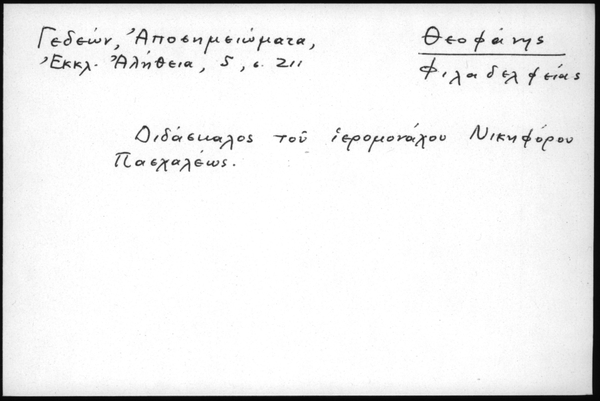 Γεδεών, Ἀποσημειώματα,
Ἐκκλ. Ἀλήθεια, 5, σ. 211
Θεοφάνης
Φιλαδελφείας
Διδάσκαλος τοῦ ἱερομονάχου Νικηφόρου
Πασχαλέως.